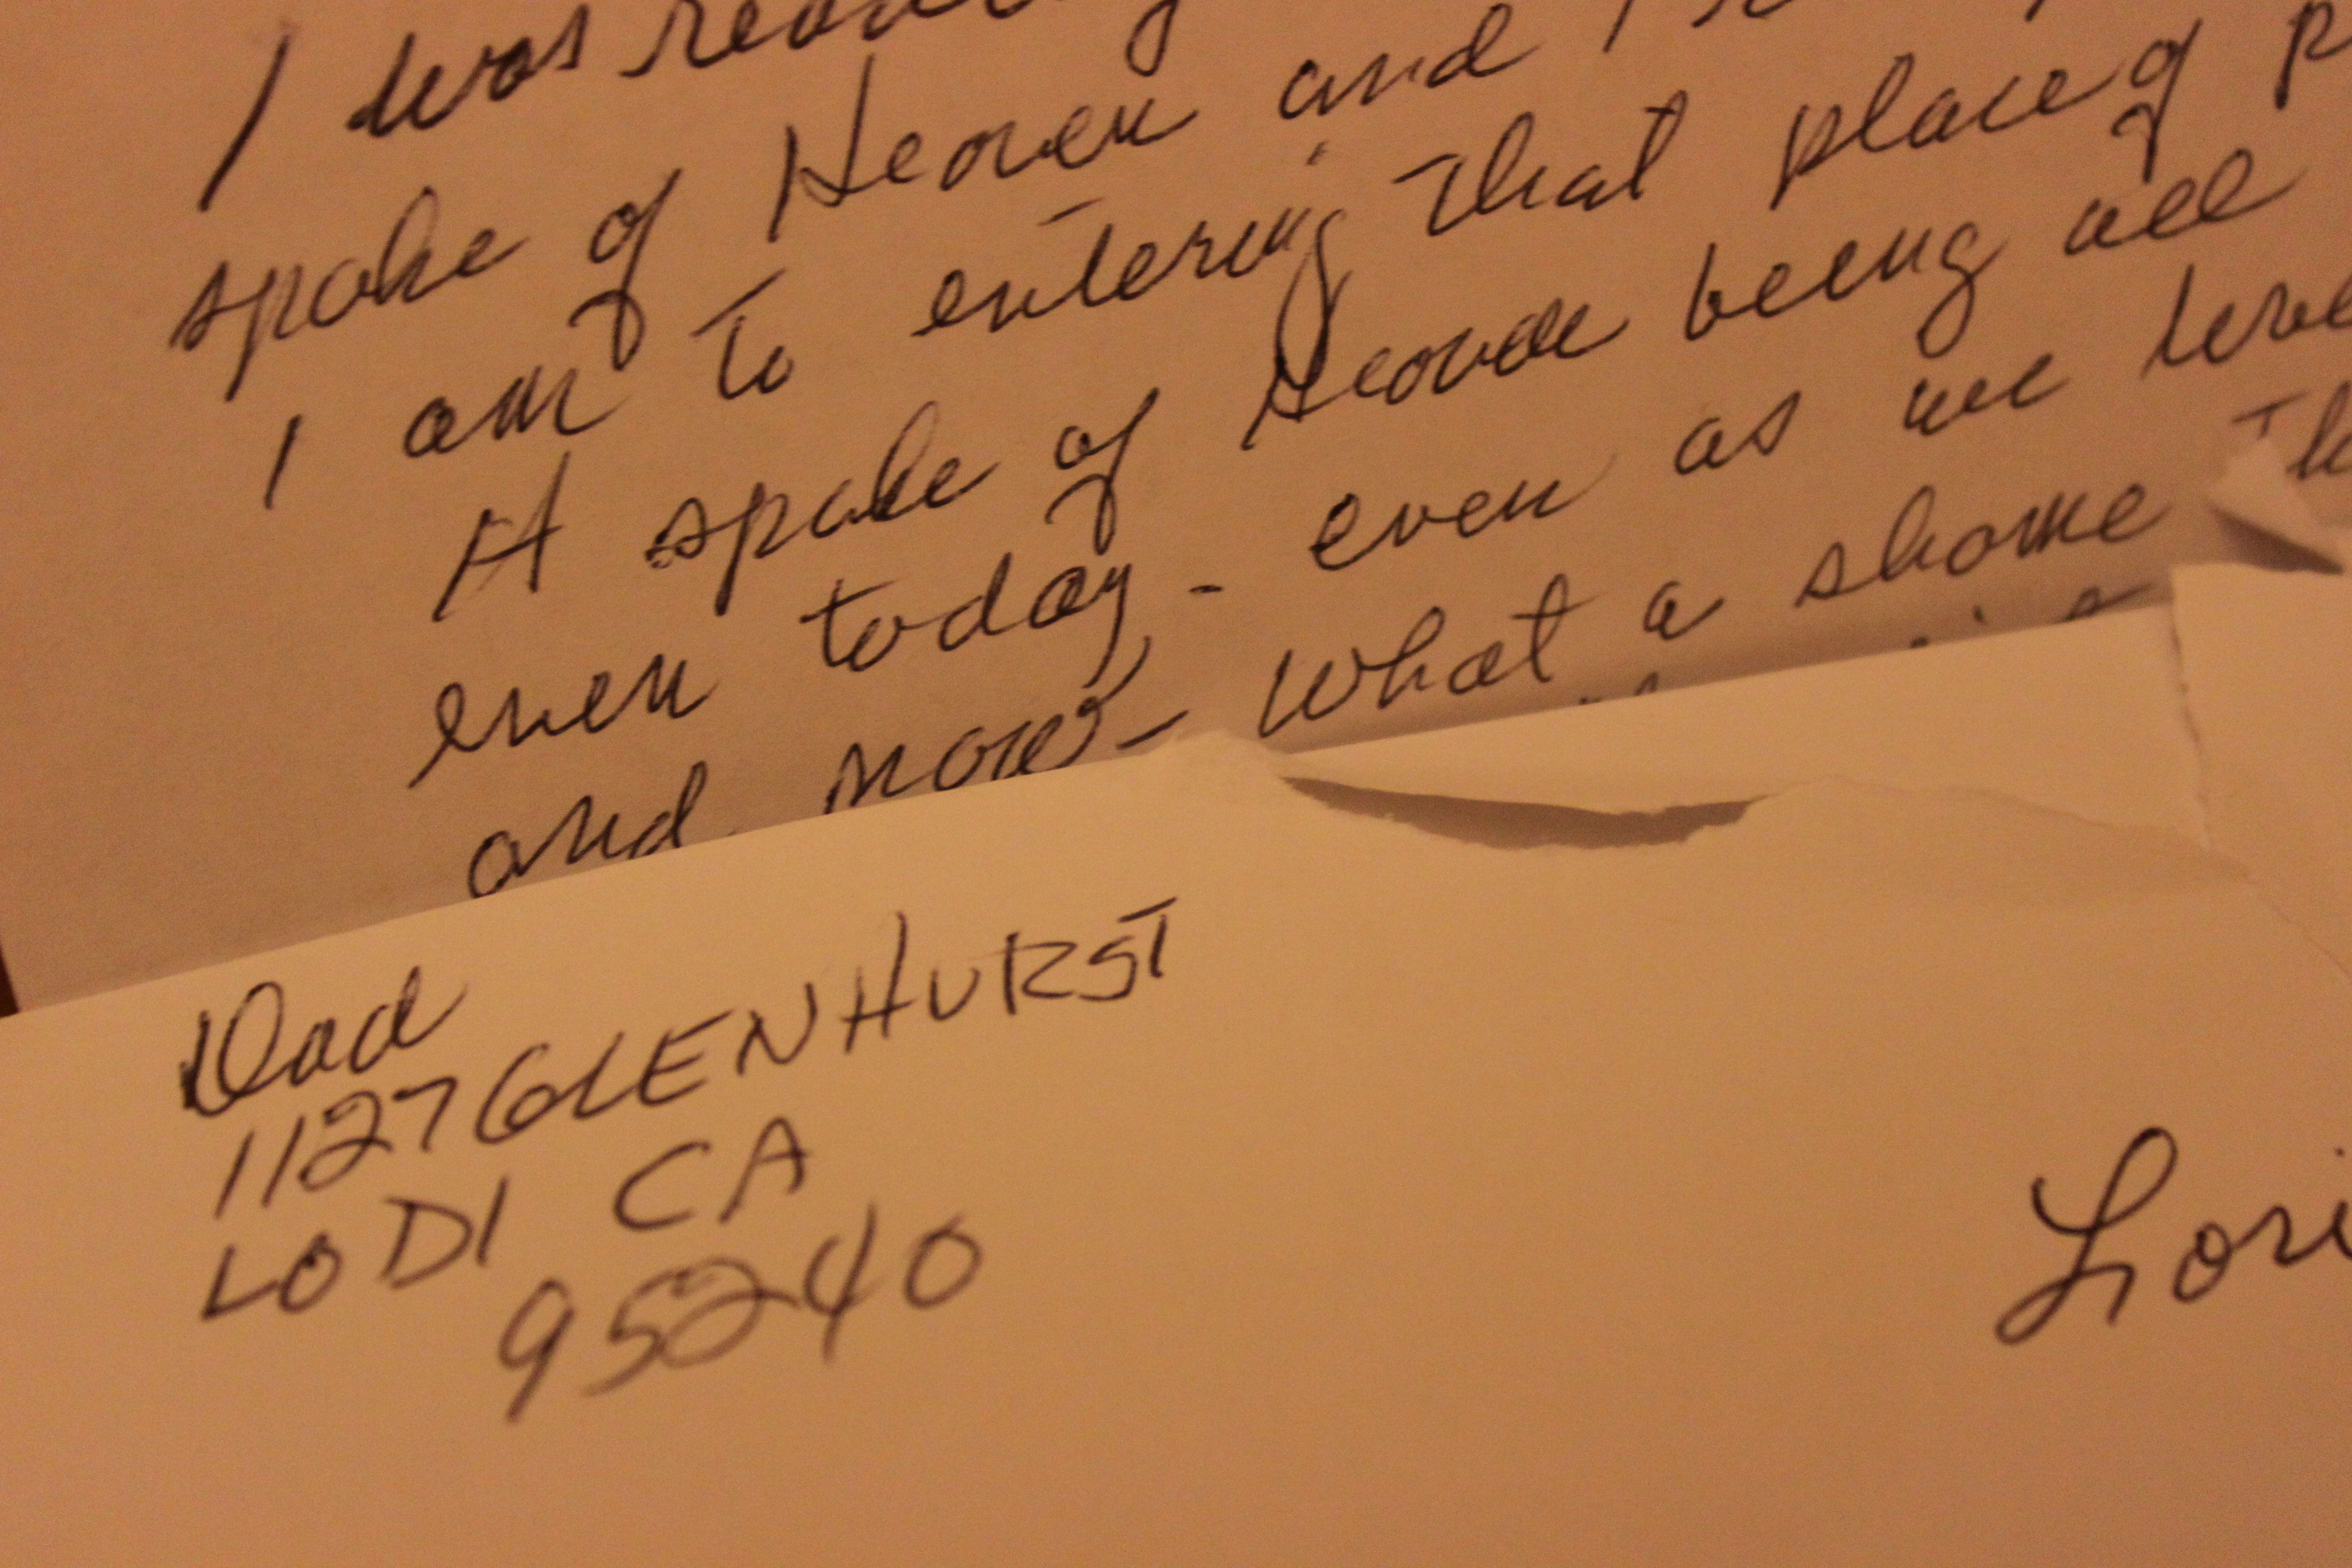 I was reading
spoke of Heaven and I
I am to entering that place of
It spoke of Heaven being all
even today - even as we
and now - what a shame
Dad
1127 GLENHURST
LODI CA
95240
Lori